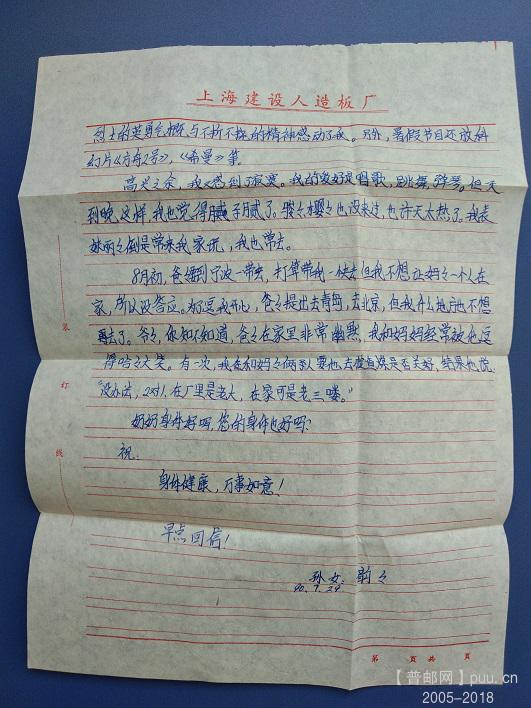 上海建设人造板厂
烈士的英勇气概与不折不挠的精神感动了我。另外，暑假节目还放科
幻片《方舟2号》，《希曼》等。
高兴之余，我又感到了寂寞。我的爱好是唱歌，跳舞，弹琴。但天
到晚这样，我也觉得腻了。也没来过，也许天太热了。我表
妹丽々倒是常来我家玩，我也常去。
8月初，爸々要到宁波一带去，打算带我一块去但我不想让妈々一个人在
家，所以没答应。为逗我开心，爸々提出去青岛，去北京，但我什么地方也不想
再去了。爷々，你知不知道，爸々在家里非常幽默，我和妈妈经常被他逗
得哈々大笑。有一次，我在和妈々俩到要他去检查是否关好，结果他说：
"没办法，2对1，在厂里是老大，在家可是老三喽。"
奶奶身体好吗，您的身体也好吗？
祝：
身体健康，万事如意！
早点回信！
孙女：韵々
90.7.29
装
订
线
第 页 共 页
【普邮网】puu.cn
2005-2018